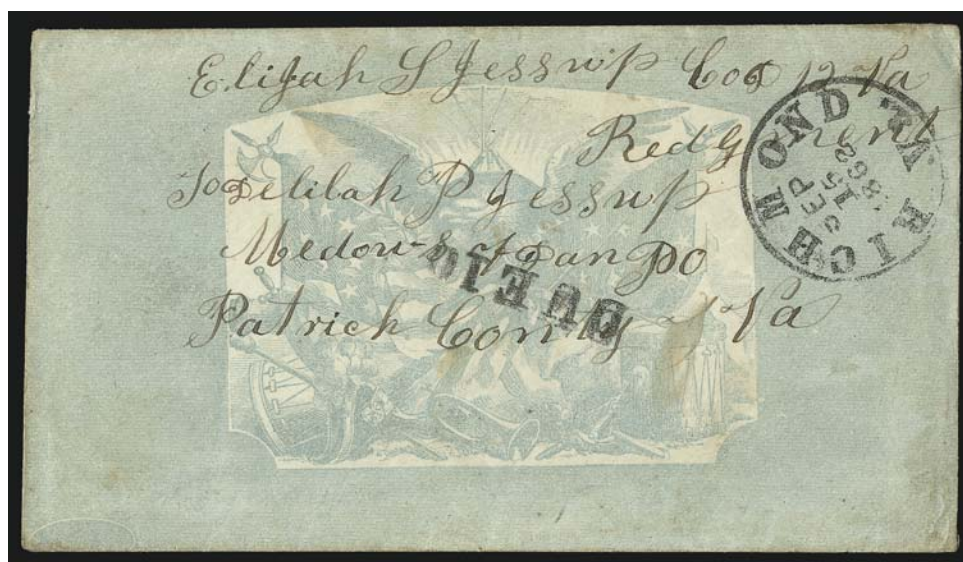 Elijah S Jessup Co 12 Va
Redgment
To Delilah P Jessup
Medows of Dan PO
Patrick Conty Va
RICHMOND VA.
SEP
15
1862
DUE 10